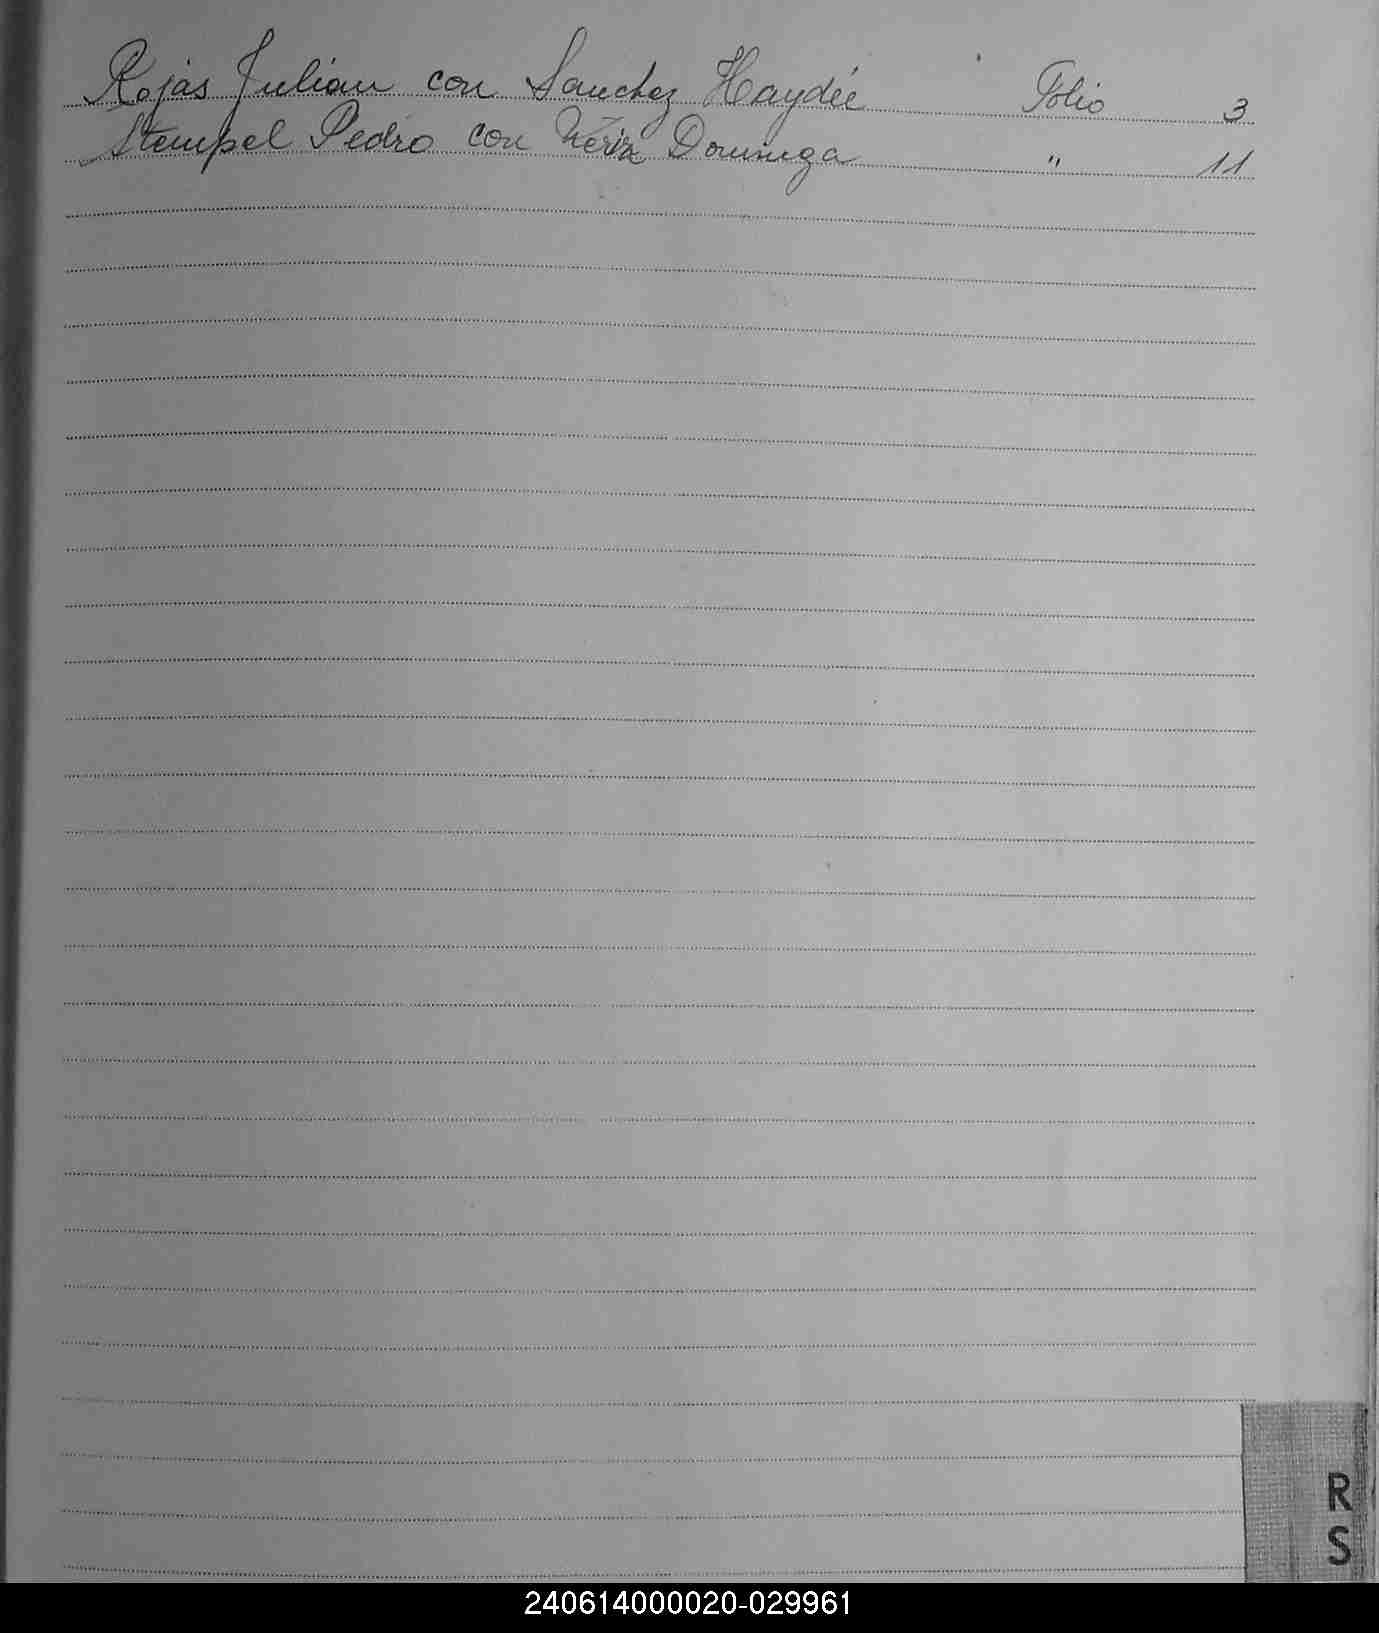 Rojas Julian con Sanchez Haydée Folio 3
Stempel Pedro con Dominga " 11
R
S
240614000020-029961